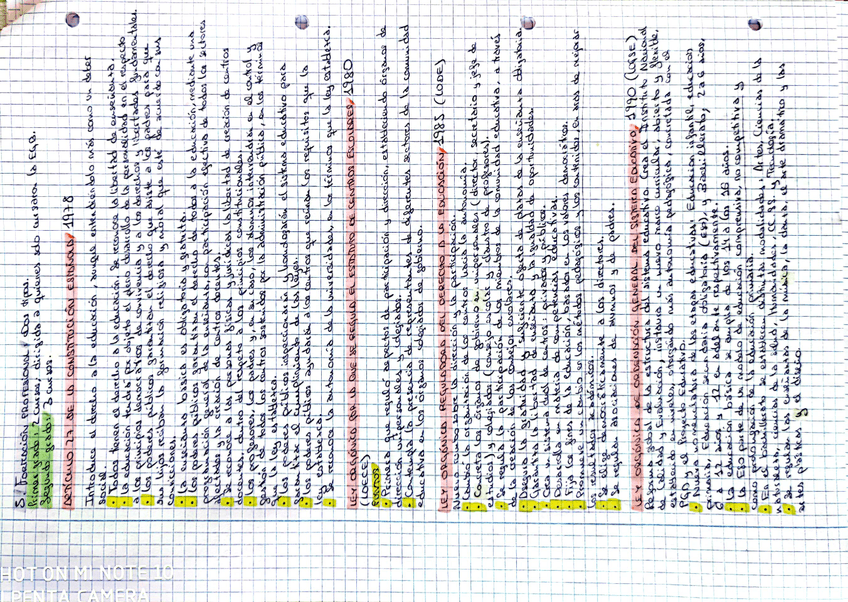 5/ FORMACIÓN PROFESIONAL/ Dos tipos.
Primer grado: 2 cursos, dirigido a quienes solo cursaron la EGB.
Segundo grado: 3 cursos.
ARTÍCULO 27 DE LA CONSTITUCIÓN ESPAÑOLA/ 1978
Introduce el derecho a la educación, aunque entendiéndolo más como un deber
social.
Todos tienen el derecho a la educación. Se reconoce la libertad de enseñanza.
La educación tendrá por objeto el pleno desarrollo de la personalidad en el respeto
a los principios democráticos de convivencia y a los derechos y libertades fundamentales.
Los poderes públicos garantizan el derecho que asiste a los padres para que
sus hijos reciban la formación religiosa y moral que esté de acuerdo con sus
convicciones.
La enseñanza básica es obligatoria y gratuita.
Los poderes públicos garantizan el derecho de todos a la educación, mediante una
programación general de la enseñanza, con participación efectiva de todos los sectores
afectados y la creación de centros docentes.
Se reconoce a las personas físicas y jurídicas la libertad de creación de centros
docentes, dentro del respeto a los principios constitucionales.
Los profesores, los padres y, en su caso, los alumnos intervendrán en el control y
gestión de todos los centros sostenidos por la administración pública, en los términos
que la ley establezca.
Los poderes públicos inspeccionarán y homologarán el sistema educativo para
garantizar el cumplimiento de las leyes.
Los poderes públicos ayudarán a los centros que reúnan los requisitos que la
ley establezca.
Se reconoce la autonomía de las universidades, en los términos que la ley establezca.
LEY ORGÁNICA POR LA QUE SE REGULA EL ESTATUTO DE CENTROS ESCOLARES/ 1980
(LOECE)
Primera que reguló aspectos de participación y dirección, estableciendo órganos de
dirección unipersonales y colegiados.
Contempla la presencia de representantes de diferentes sectores de la comunidad
educativa en los órganos colegiados de gobierno.
LEY ORGÁNICA REGULADORA DEL DERECHO A LA EDUCACIÓN/ 1985 (LODE)
Nuevos rumbos sobre la dirección y la participación.
Centró la organización de los centros hacia la autonomía.
Concreta los órganos de gobierno en unipersonales (director, secretario y jefe de
estudios) y colegiados (consejo escolar y claustro de profesores).
Se regula la participación de los miembros de la comunidad educativa, a través
de la creación de los consejos escolares.
Asegura la gratuidad y suficiente oferta de plazas de la enseñanza obligatoria.
Garantiza la libertad de enseñanza y la igualdad de oportunidades.
Crea una red dual de centros: privados y públicos.
Desarrolla en materia de competencias educativas.
Fija los fines de la educación, basados en los valores democráticos.
Promueve un cambio en los métodos pedagógicos y los contenidos, en aras de mejorar
los resultados académicos.
Se elige democráticamente a los directores.
Se regulan asociaciones de alumnos y de padres.
LEY ORGÁNICA DE ORDENACIÓN GENERAL DEL SISTEMA EDUCATIVO/ 1990 (LOGSE)
Reforma global de la estructura del sistema educativo. Crea el Instituto Nacional
de Calidad y Evaluación, instaura un diseño curricular, abierto y flexible,
estableciendo y otorgando más autonomía pedagógica, concretada con el
PCC y el Proyecto Educativo.
Nueva nomenclatura de las etapas educativas: Educación infantil, educación
primaria, Educación secundaria obligatoria (ESO), y Bachillerato, 2 a 6 años,
6 a 12 años y 12 en adelante respectivamente.
La educación básica se amplía de los 14 a los 16 años.
La ESO parte de un modelo de educación comprensiva, no competitiva y
como prolongación de la educación primaria.
En el bachillerato se establecen distintas modalidades, Artes, Ciencias de la
naturaleza, ciencias de la salud, Humanidades, CC. SS. y Tecnología.
Se regulan las enseñanzas de la música, la danza, el arte dramático y las
artes plásticas y el diseño.
HOT ON MI NOTE 10
PENTA CAMERA